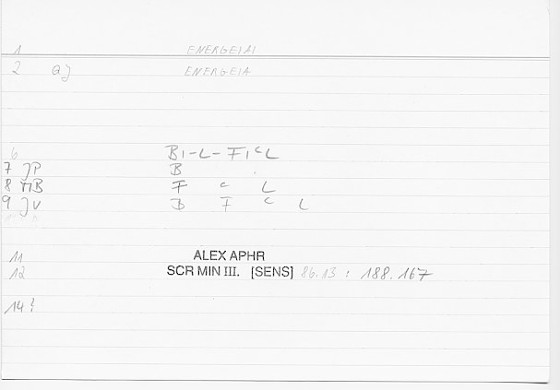 1 ENERGEIAI
2 QJ ENERGEIA
6 BI-L-FICL
7 JP B
8 MB F C L
9 JV B F C L
11 ALEX APHR
12 SCR MIN III. [SENS] 86.13 : 188.167
14?